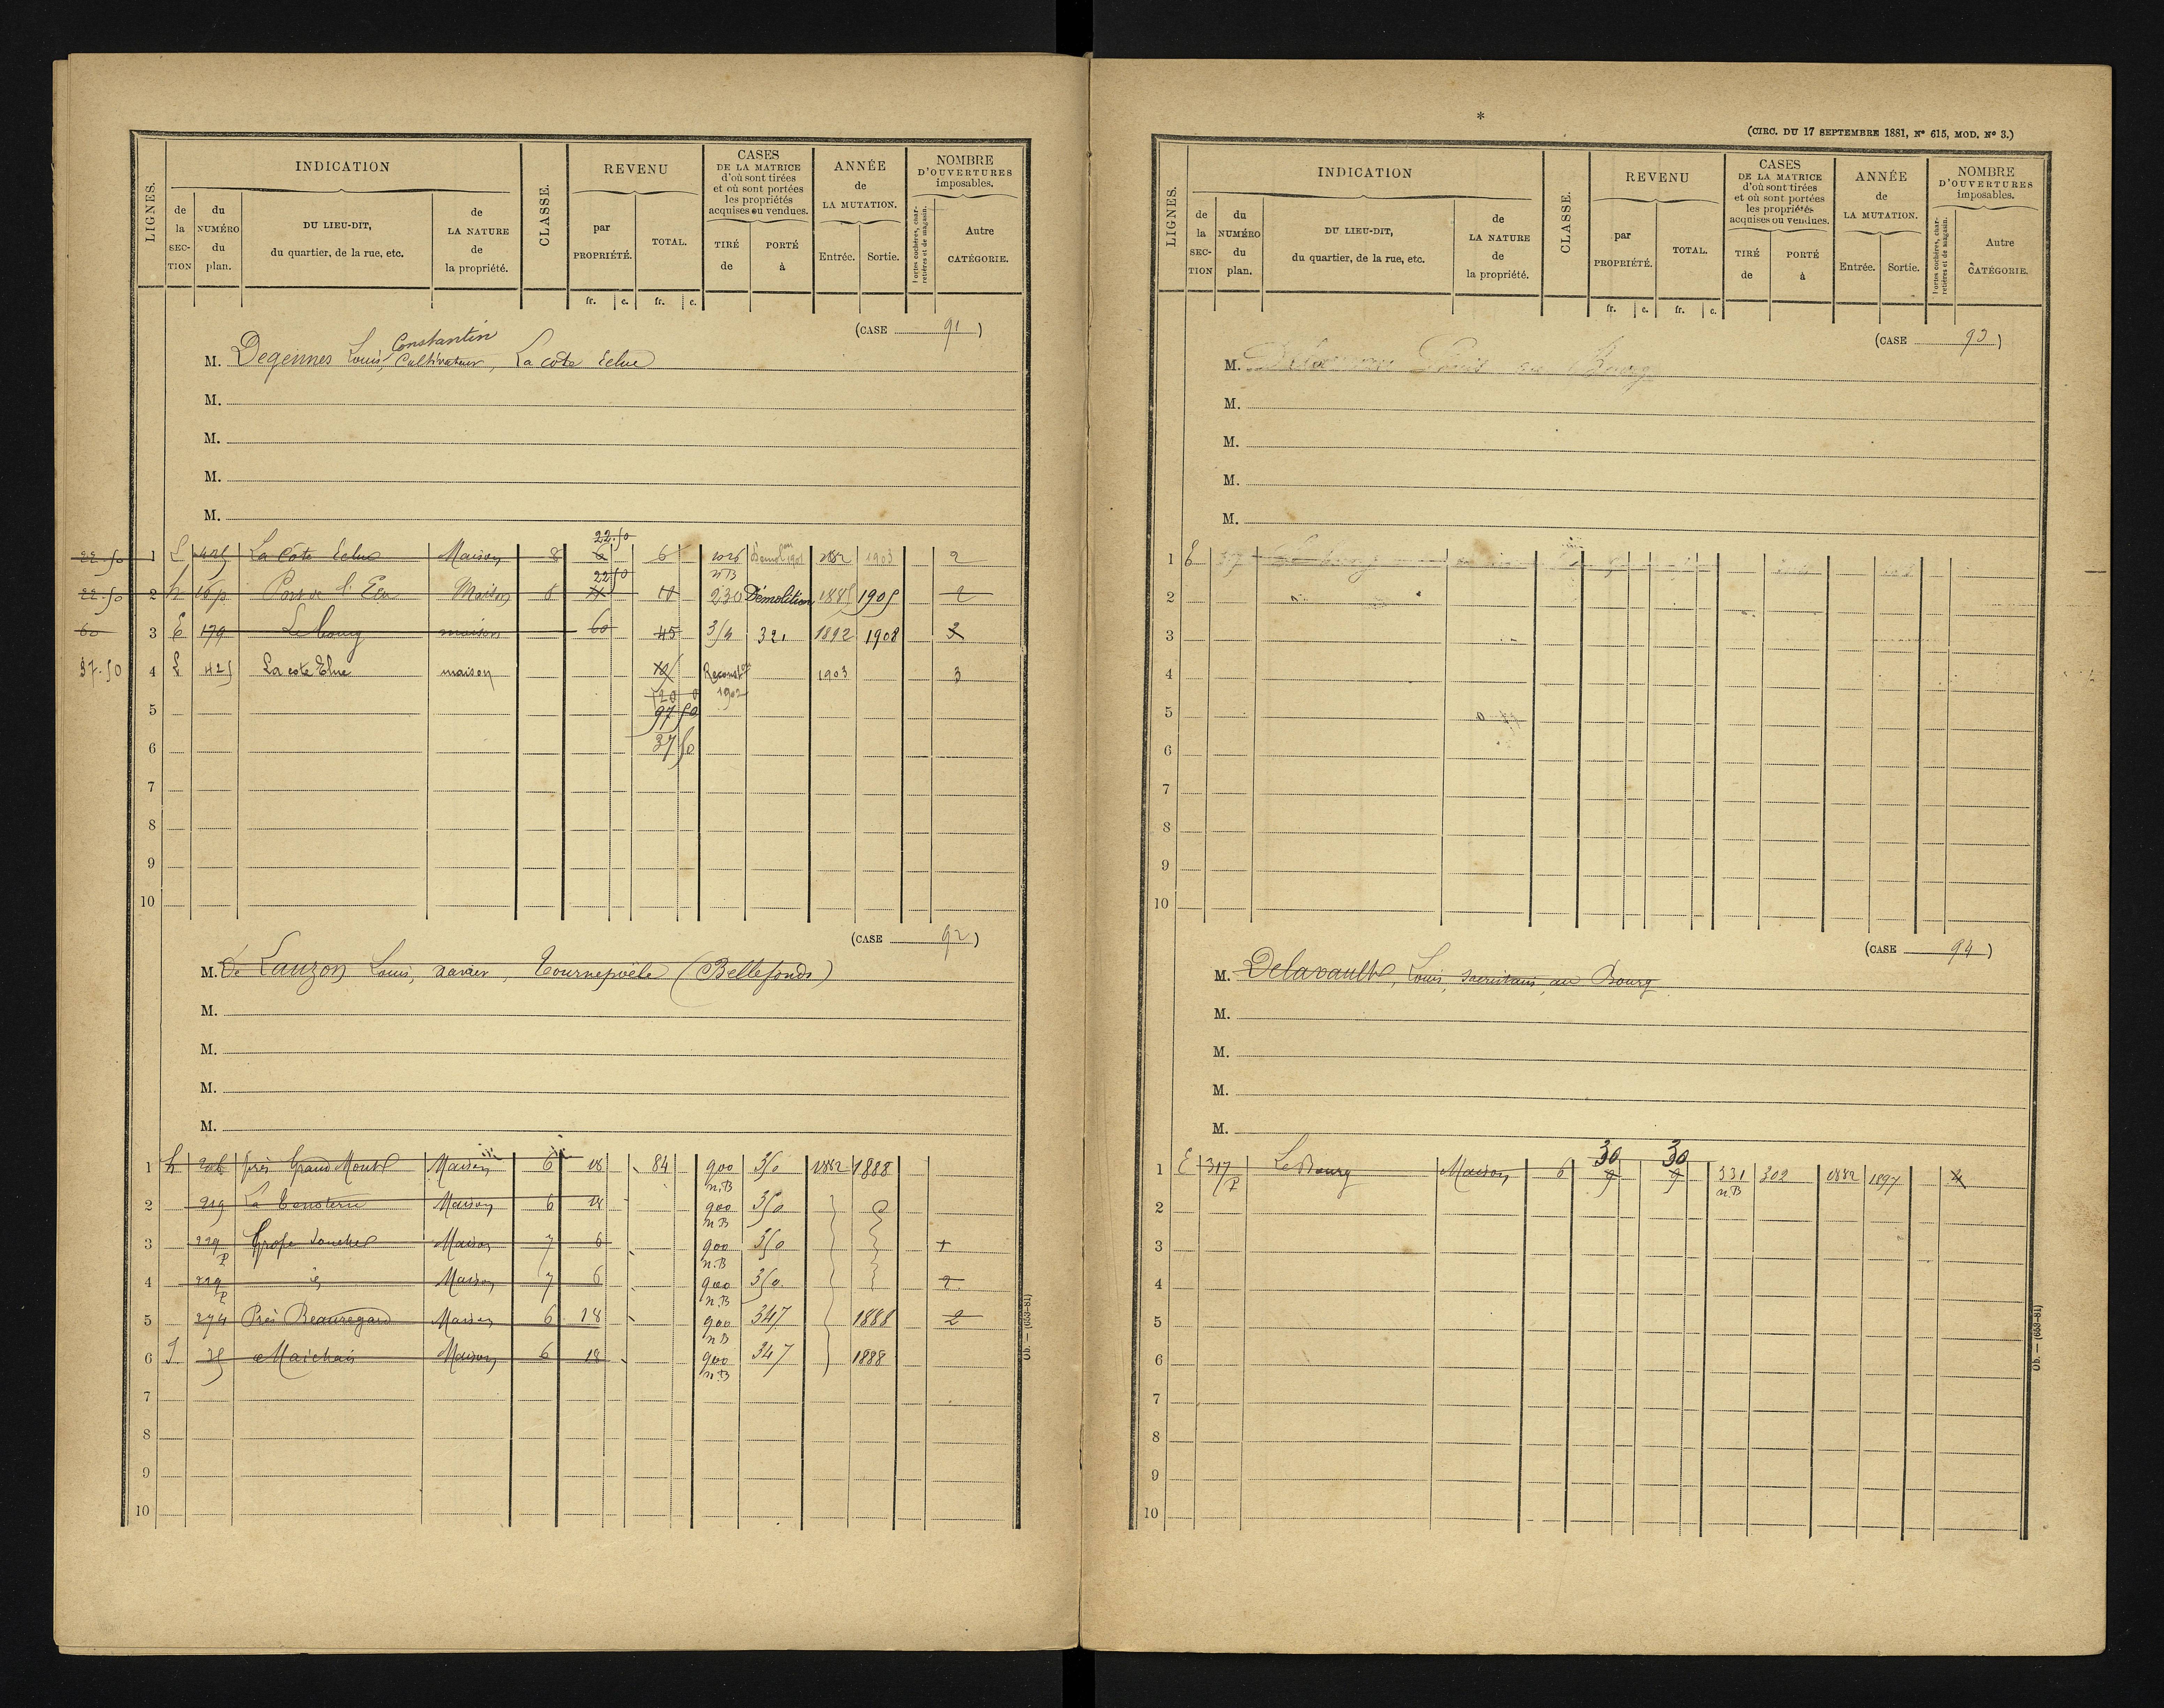 LIGNES.
INDICATION
de la SECTION
du NUMÉRO du plan.
DU LIEU-DIT, du quartier, de la rue, etc.
de LA NATURE de la propriété.
CLASSE.
REVENU
par PROPRIÉTÉ.
TOTAL.
fr. c. fr. c.
CASES DE LA MATRICE d'où sont tirées et où sont portées les propriétés acquises ou vendues.
TIRÉ de
PORTÉ à
ANNÉE de LA MUTATION.
Entrée. Sortie.
NOMBRE D'OUVERTURES imposables.
Portes cochères, charretières et de magasin.
Autre CATÉGORIE.
(CASE 91)
Constantin
M. Degennes Louis, Cultivateur, La cote Eclue
M.
M.
M.
M.
22.50
22.50 1 425 La Côte Eclue Maison 8 6 6 1882 1903 2
nB
22.50
22.50 2 h Maison 8 230 Démolition 1885 1905 2
60 3 E 179 Le bourg maison 60 45 314 321 1892 1908
37.50 4 425 La cote Elue maison Reconston 1903 3
1902
5 97 50
6 37 50
7
8
9
10
(CASE 92)
M. De Lauzon Louis, xavier, Tournepoële (Bellefonds)
M.
M.
M.
M.
1 h près Grand Mont Maison 6 18 84 900 350 1882 1888
n.B
2 219 Maison 6 18 900 350
n B
3 229 Maison 7 6 900 350
P n.B
4 229 id Maison 7 6 900 350 2
P n.B
5 274 Près Beauregard Maison 6 18 900 347 1888 2
n B
6 Maison 6 18 900 347 1888
n.B
7
8
9
10
Ob. — (653-81)
*
(CIRC. DU 17 SEPTEMBRE 1881, N° 615, MOD. N° 3.)
LIGNES.
INDICATION
de la SECTION
du NUMÉRO du plan.
DU LIEU-DIT, du quartier, de la rue, etc.
de LA NATURE de la propriété.
CLASSE.
REVENU
par PROPRIÉTÉ.
TOTAL.
fr. c. fr. c.
CASES DE LA MATRICE d'où sont tirées et où sont portées les propriétés acquises ou vendues.
TIRÉ de
PORTÉ à
ANNÉE de LA MUTATION.
Entrée. Sortie.
NOMBRE D'OUVERTURES imposables.
Portes cochères, charretières et de magasin.
Autre CATÉGORIE.
(CASE 93)
M. Louis au Bourg
M.
M.
M.
M.
1 E 317
2
3
4
5
6
7
8
9
10
(CASE 94)
M. Delavault, Louis, sacristain, au Bourg
M.
M.
M.
M.
30 30
1 E 317 Le Bourg Maison 6 9 9 331 302 1882 1897
P n.B
2
3
4
5
6
7
8
9
10
Ob. — (653-81)